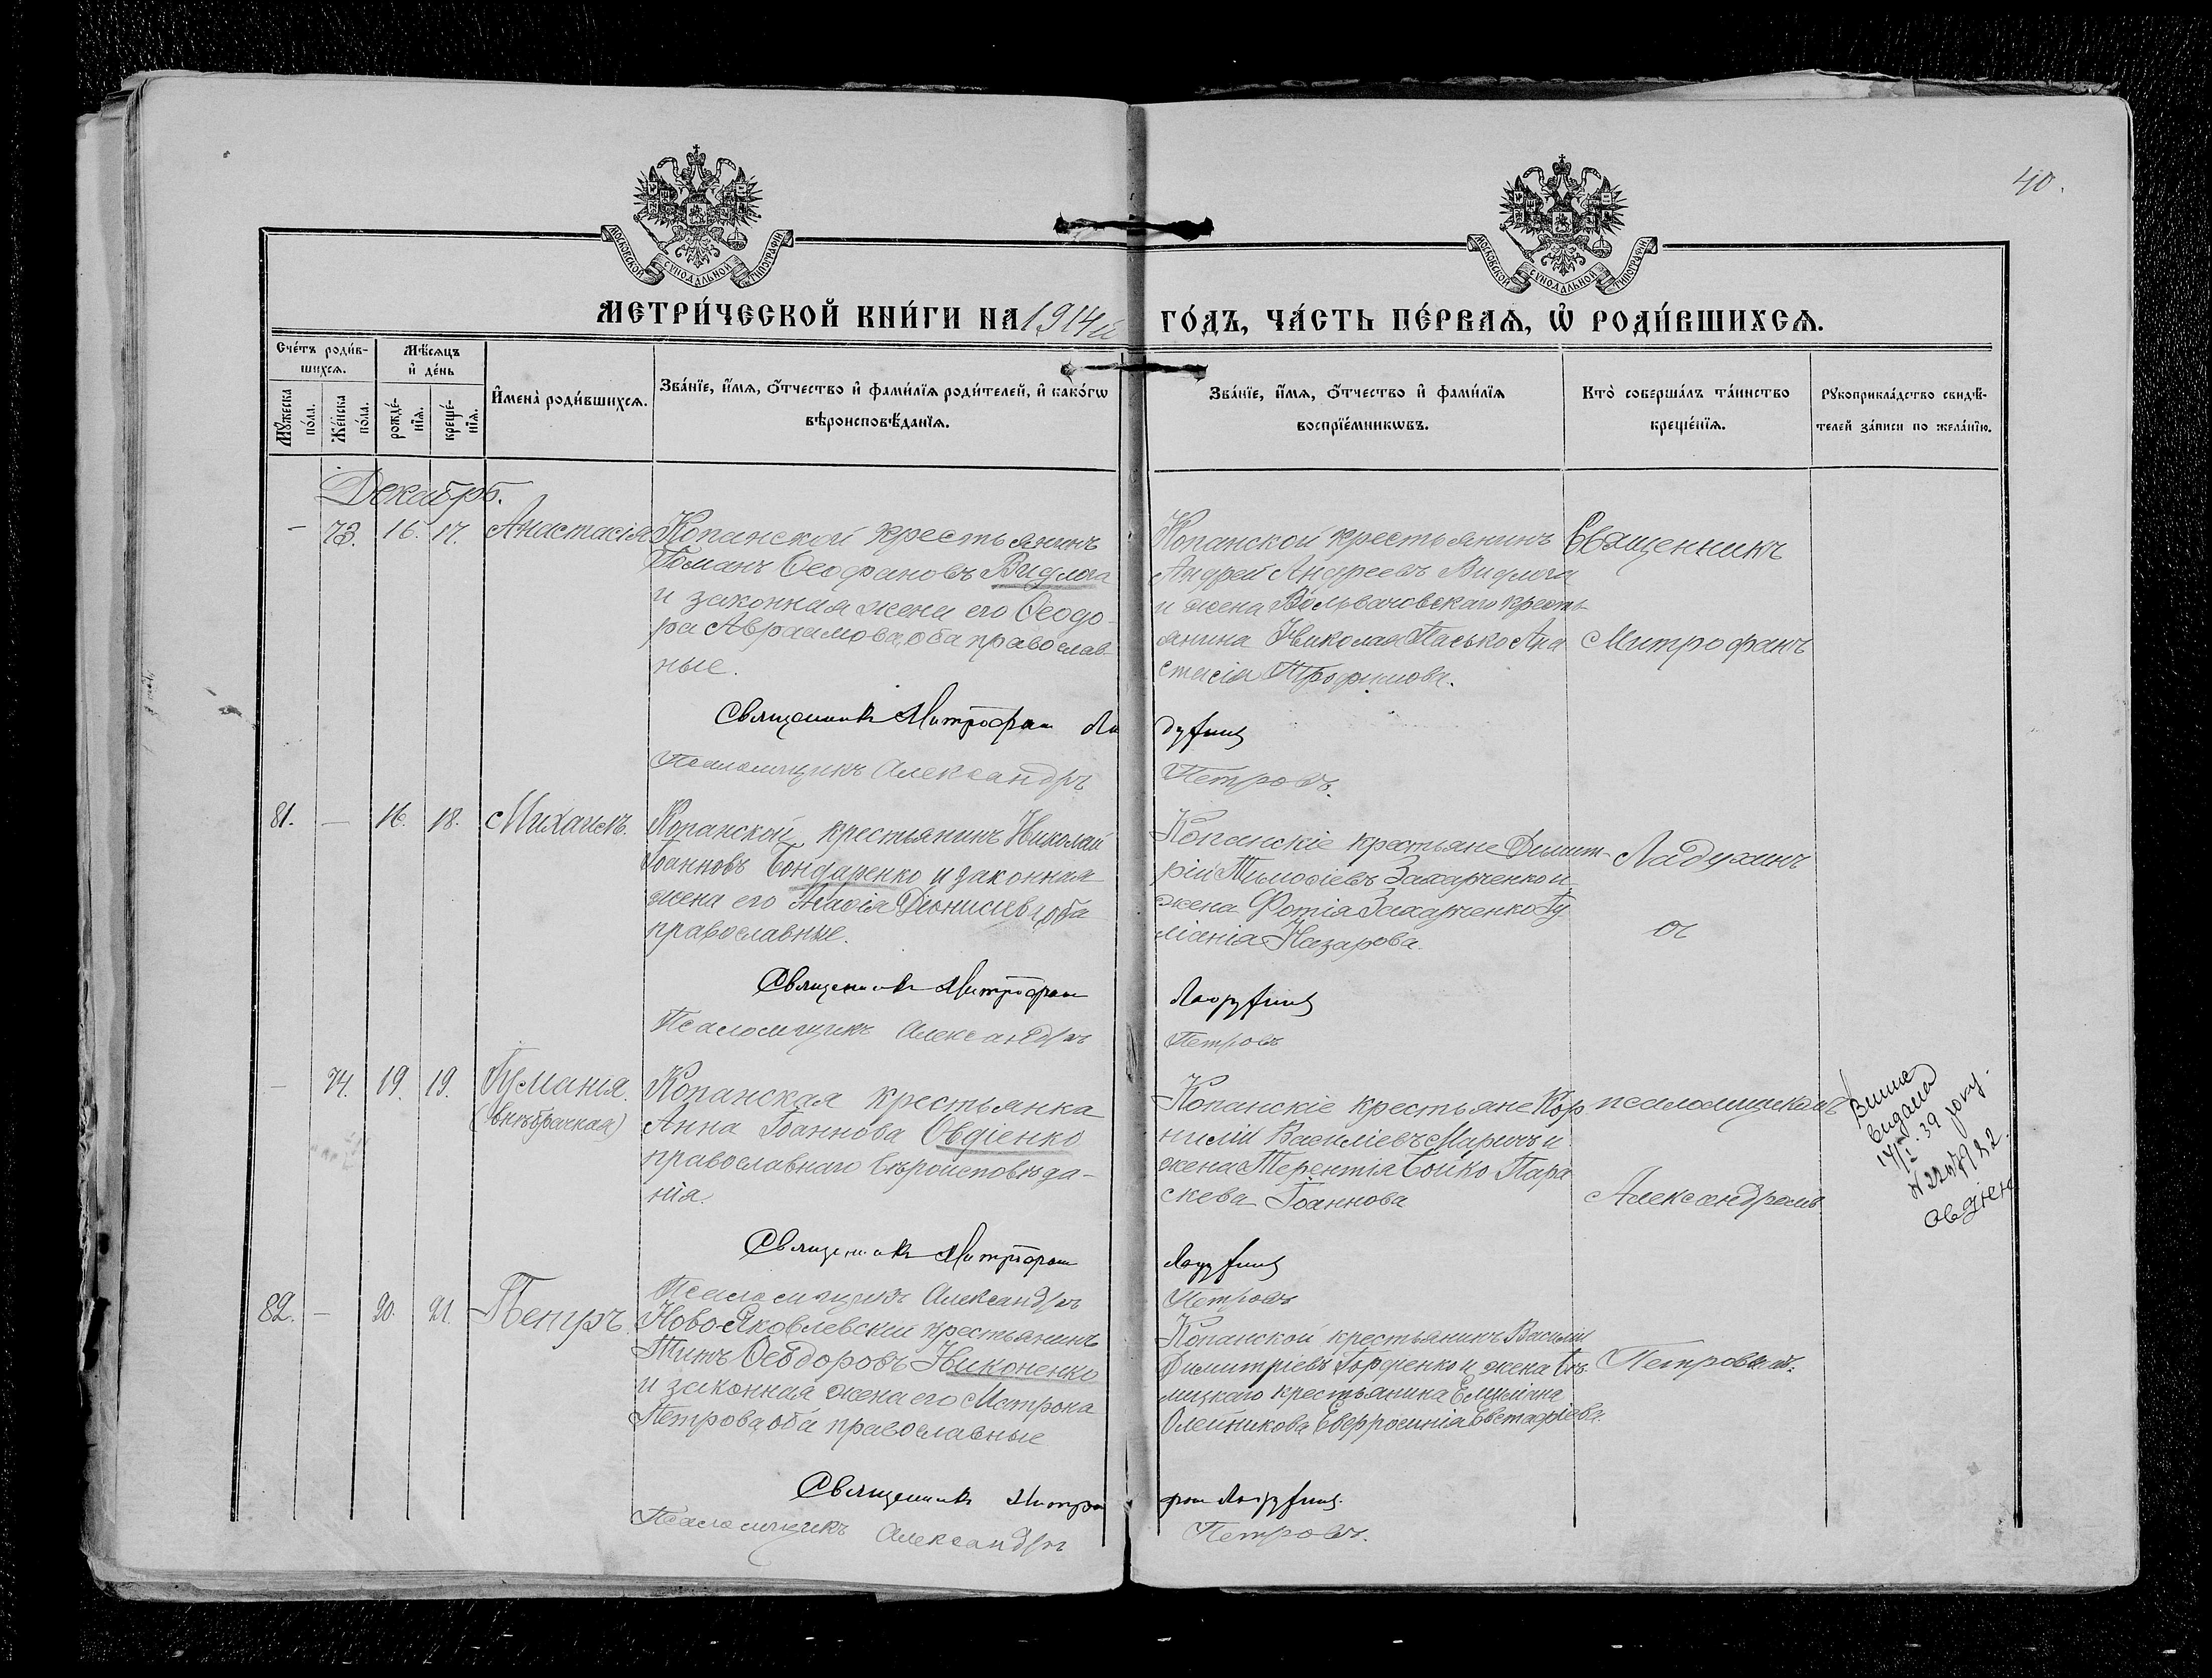 40.
МОСКОВСКОЙ СУНОДАЛЬНОЙ ТИПОГРАФІИ
МОСКОВСКОЙ СУНОДАЛЬНОЙ ТИПОГРАФІИ
МЕТРИ́ЧЕСКОЙ КНИ́ГИ НА 1914й ГО́ДЪ, ЧА́СТЬ ПЕ́РВАѦ, Ѡ҆ РОДИ́ВШИХСѦ.
Сче́тъ роди́в-
шихсѧ.
Мѣ́сѧцъ
и҆ де́нь
Мꙋ́жеска
по́ла.
Же́нска
по́ла.
рожде́-
нїѧ.
креще́-
нїѧ.
И҆мена̀ роди́вшихсѧ.
Зва́нїе, и҆́мѧ, ѻ҆́тчество и҆ фами́лїѧ роди́телей, и҆ како́гѡ
вѣроисповѣ́данїѧ.
Зва́нїе, и҆́мѧ, ѻ҆́тчество и҆ фами́лїѧ
воспрїе́мникѡвъ.
Кто̀ соверша́лъ та́инство
креще́нїѧ.
Рꙋкоприкла́дство свидѣ́-
телей за́писи по жела́нїю.
Декабрь.
- 73. 16. 17. Анастасія
Копанской крестьянинъ
Романъ Ѳеофановъ Видлога
и законная жена его Ѳеодо-
ра Авраамова, оба православ-
ные.
Копанской крестьянинъ
Андрей Андреевъ Видлога
и жена крестъ-
янина Николая Пасько Ана
стасія Трофимова.
Священникъ
Митрофанъ
Священникъ Митрофан Ладухинъ
Псаломщикъ Александръ Петровъ.
81. — 16. 18. Михаилъ.
Копанской крестьянинъ Николай
Іоанновъ Бондаренко и законная
жена его Агаѳія Діонисіева, оба
православные.
Копанскіе крестьяне Димит-
рій Тимоѳіевъ Захарченко и
жена Фотія Захарченко Іу
ліанія Назарова.
Ладухинъ
съ
Священникъ Митрофан Ладухинъ
Псаломщикъ Александръ Петровъ
— 74. 19. 19. Іуліанія.
(внѣбрачная)
Копанская крестьянка
Анна Іоаннова Овдіенко
православнаго вѣроисповѣда-
нія.
Копанскіе крестьяне Кор
нилій Василіевъ Маричъ и
жена Терентія Бойко Пара
скева Іоаннова
псаломщикомъ
Александромъ
видана
39 року.
Овдіен
Священникъ Митрофан Ладухинъ
Псаломщикъ Александръ Петровъ
82. — 20. 21. Петръ.
Ново-Яковлевскій крестьянинъ
Титъ Ѳеодоровъ Никоненко
и законная жена его Матрона
Петрова, оба православные
Копанской крестьянинъ Василій
Димитріевъ Гордіенко и жена
крестьянина Емиліана
Олейникова Евфросинія Евстафіева.
Петровымъ.
Священникъ Митрофан Ладухинъ.
Псаломщикъ Александръ Петровъ.